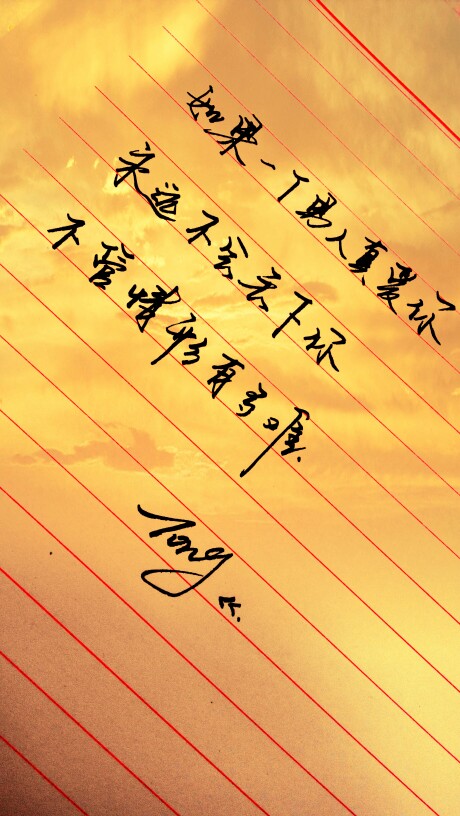 如果一个男人真爱你
永远不会丢下你
不管情形有多难.
Tong